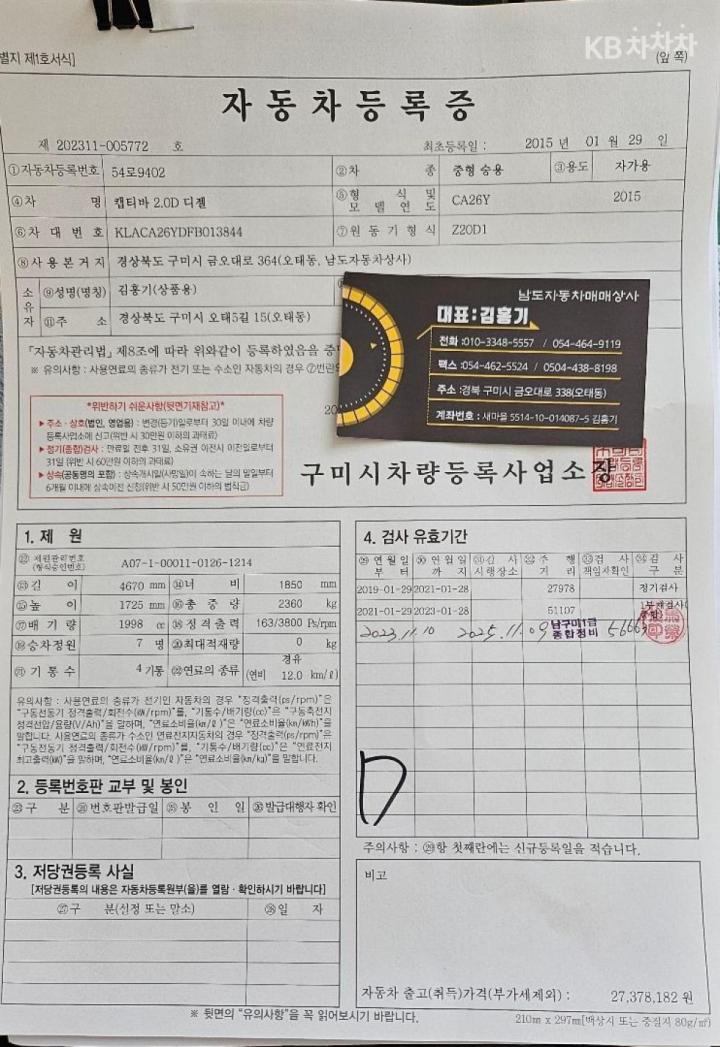 KB차차차
별지 제1호서식]
(앞 쪽)
자동차등록증
제 202311-005772 호
최초등록일 : 2015 년 01 월 29 일
①자동차등록번호 54로9402 ②차 종 중형 승용 ③용도 자가용
④차 명 캡티바 2.0D 디젤 ⑤형 식 및 모델연도 CA26Y 2015
⑥차 대 번 호 KLACA26YDFB013844 ⑦원 동 기 형 식 Z20D1
⑧사 용 본 거 지 경상북도 구미시 금오대로 364(오태동, 남도자동차상사)
소유자 ⑨성명(명칭) 김홍기(상품용)
⑪주 소 경상북도 구미시 오태5길 15(오태동)
「자동차관리법」 제8조에 따라 위와같이 등록하였음을 증
※ 유의사항 : 사용연료의 종류가 전기 또는 수소인 자동차의 경우 ⑦번란
20
남도자동차매매상사
대표:김홍기
전화 :010-3348-5557 / 054-464-9119
팩스 :054-462-5524 / 0504-438-8198
주소 :경북 구미시 금오대로 338(오태동)
계좌번호 : 새마을 5514-10-014087-5 김홍기
*위반하기 쉬운사항(뒷면기재참고)*
▶주소 · 상호(법인, 영업용) : 변경(등기)일로부터 30일 이내에 차량
등록사업소에 신고(위반 시 30만원 이하의 과태료)
▶정기(종합)검사 : 만료일 전후 31일, 소유권 이전시 이전일로부터
31일 (위반 시 60만원 이하의 과태료)
▶상속(공동명의 포함) : 상속개시일(사망일)이 속하는 달의 말일부터
6개월 이내에 상속이전 신청(위반 시 50만원 이하의 범칙금)
구미시차량등록사업소장
1. 제 원
제원관리번호
(형식승인번호) A07-1-00011-0126-1214
⑬길 이 4670 mm ⑭너 비 1850 mm
⑮높 이 1725 mm ⑯총 중 량 2360 kg
⑰배 기 량 1998 cc ⑱정격출력 163/3800 Ps/rpm
⑲승차정원 7 명 ⑳최대적재량 0 kg
㉑기 통 수 4 기통 ㉒연료의 종류 경유
(연비 12.0 km/ℓ)
유의사항 : 사용연료의 종류가 전기인 자동차의 경우 "정격출력(ps/rpm)"은
"구동전동기 정격출력/회전수(㎾/rpm)"를, "기통수/배기량(cc)"은 "구동축전지
정격전압/용량(V/Ah)"을 말하며, "연료소비율(㎞/ℓ)"은 "연료소비율(㎞/㎾h)"를
말합니다. 사용연료의 종류가 수소인 연료전지자동차의 경우 "정격출력"은
"구동전동기 정격출력/회전수(㎾/rpm)"를, "기통수/배기량(cc)"은 "연료전지
최고출력(㎾)"을 말하며, "연료소비율(㎞/ℓ)"은 "연료소비율(㎞/㎏)"을 말합니다.
2. 등록번호판 교부 및 봉인
㉓구 분 ㉔번호판발급일 ㉕봉 인 일 ㉖발급대행자 확인
3. 저당권등록 사실
[저당권등록의 내용은 자동차등록원부(을)를 열람 · 확인하시기 바랍니다]
㉗구 분(설정 또는 말소) ㉘일 자
4. 검사 유효기간
㉙연월일부터 ㉚연월일까지 ㉛검 사 시행장소 ㉜주 행 거 리 ㉝검 사 책임자확인 ㉞검 사 구 분
2019-01-29 2021-01-28 27978 정기검사
2021-01-29 2023-01-28 51107
2023.11.10 2025.11.09 남구미1급 종합정비
D
주의사항 : ㉙항 첫째란에는 신규등록일을 적습니다.
비고
자동차 출고(취득)가격(부가세제외) : 27,378,182 원
※ 뒷면의 "유의사항"을 꼭 읽어보시기 바랍니다.
210㎜ x 297㎜[백상지 또는 중질지 80g/㎡]